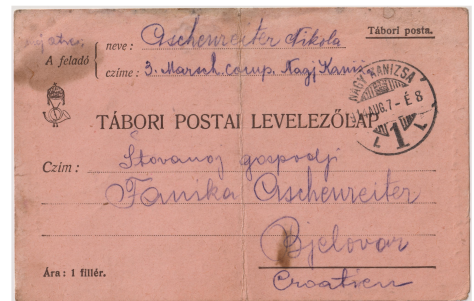 Tábori posta.
A feladó
neve: Aschenreiter Nikola
czime: 3. Marsch comp. Nagj Kaniz
NAGY KANIZSA
AUG. 7 - É 8
1
TÁBORI POSTAI LEVELEZŐLAP
Czim: Štovanoj gospodji
Fanika Aschenreiter
Bjelovar
Ára: 1 fillér.
Croatien